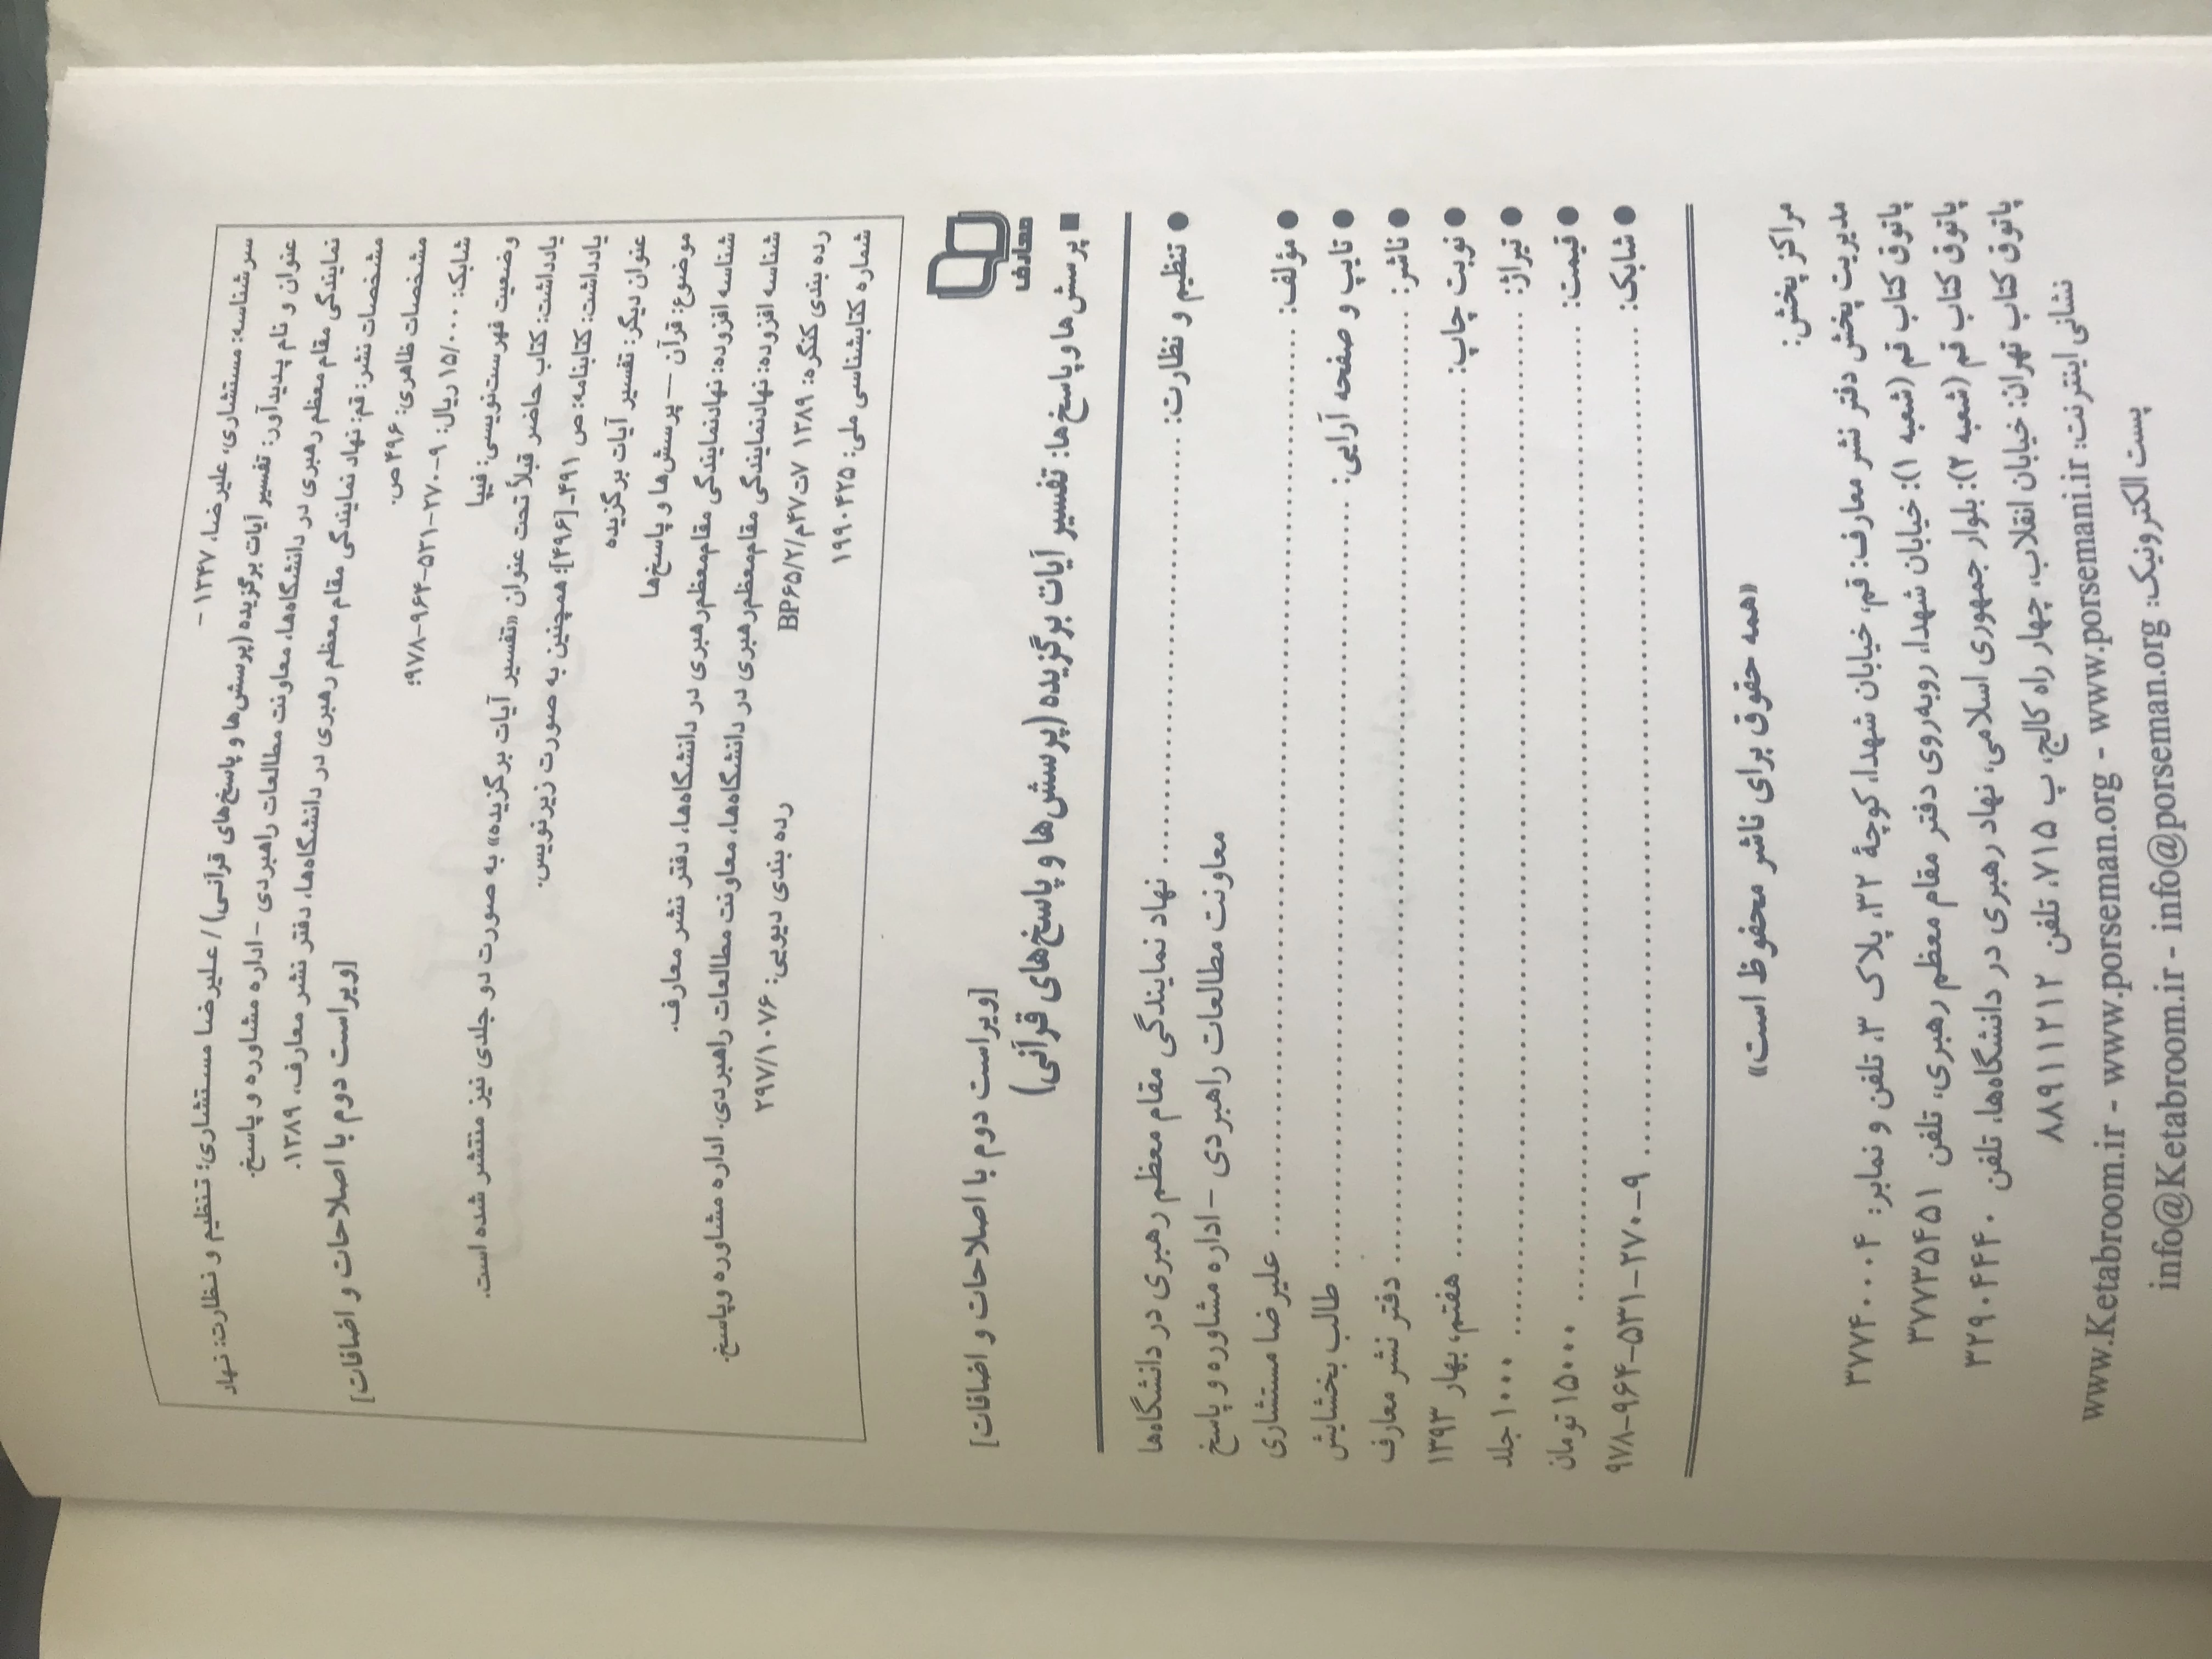 سرشناسه: مستشاری، علیرضا، ۱۳۴۷ -
عنوان و نام پدیدآور: تفسیر آیات برگزیده (پرسش‌ها و پاسخ‌های قرآنی) / علیرضا مستشاری؛ تنظیم و نظارت: نهاد
نمایندگی مقام معظم رهبری در دانشگاه‌ها، معاونت مطالعات راهبردی - اداره مشاوره و پاسخ.
مشخصات نشر: قم: نهاد نمایندگی مقام معظم رهبری در دانشگاه‌ها، دفتر نشر معارف، ۱۳۸۹.
مشخصات ظاهری: ۴۹۶ ص. [ویراست دوم با اصلاحات و اضافات]
شابک: ۱۵/۰۰۰ ریال: ۹-۲۷۰-۵۳۱-۹۶۴-۹۷۸:
وضعیت فهرست‌نویسی: فیپا
یادداشت: کتاب حاضر قبلاً تحت عنوان «تفسیر آیات برگزیده» به صورت دو جلدی نیز منتشر شده است.
یادداشت: کتابنامه: ص ۴۹۱-[۴۹۶]؛ همچنین به صورت زیرنویس.
عنوان دیگر: تفسیر آیات برگزیده
موضوع: قرآن — پرسش‌ها و پاسخ‌ها
شناسه افزوده: نهاد نمایندگی مقام معظم رهبری در دانشگاه‌ها، دفتر نشر معارف.
شناسه افزوده: نهاد نمایندگی مقام معظم رهبری در دانشگاه‌ها، معاونت مطالعات راهبردی. اداره مشاوره و پاسخ.
رده بندی کنگره: ۱۳۸۹ ۷ت۴۷م/۲/BP۶۵ رده بندی دیویی: ۲۹۷/۱۰۷۶
شماره کتابشناسی ملی: ۱۹۹۰۴۲۵
معارف
[ویراست دوم با اصلاحات و اضافات]
■ پرسش‌ها و پاسخ‌ها: تفسیر آیات برگزیده (پرسش‌ها و پاسخ‌های قرآنی)
● تنظیم و نظارت: ........ نهاد نمایندگی مقام معظم رهبری در دانشگاه‌ها
معاونت مطالعات راهبردی - اداره مشاوره و پاسخ
● مؤلف: ........ علیرضا مستشاری
● تایپ و صفحه آرایی: ........ طالب بخشایش
● ناشر: ........ دفتر نشر معارف
● نوبت چاپ: ........ هفتم، بهار ۱۳۹۳
● تیراژ: ........ ۱۰۰۰ جلد
● قیمت: ........ ۱۵۰۰۰ تومان
● شابک: ........ ۹-۲۷۰-۵۳۱-۹۶۴-۹۷۸
«همه حقوق برای ناشر محفوظ است»
مراکز پخش:
مدیریت پخش دفتر نشر معارف: قم، خیابان شهدا، کوچهٔ ۳۲، پلاک ۳، تلفن و نمابر: ۳۷۷۴۰۰۰۴
پاتوق کتاب قم (شعبه ۱): خیابان شهدا، روبه‌روی دفتر مقام معظم رهبری، تلفن ۳۷۷۳۵۴۵۱
پاتوق کتاب قم (شعبه ۲): بلوار جمهوری اسلامی، نهاد رهبری در دانشگاه‌ها، تلفن ۳۲۹۰۴۴۴۰
پاتوق کتاب تهران: خیابان انقلاب، چهار راه کالج، پ ۷۱۵، تلفن ۸۸۹۱۱۲۱۲
نشانی اینترنت: www.Ketabroom.ir - www.porseman.org - www.porsemani.ir
پست الکترونیک: info@Ketabroom.ir - info@porseman.org